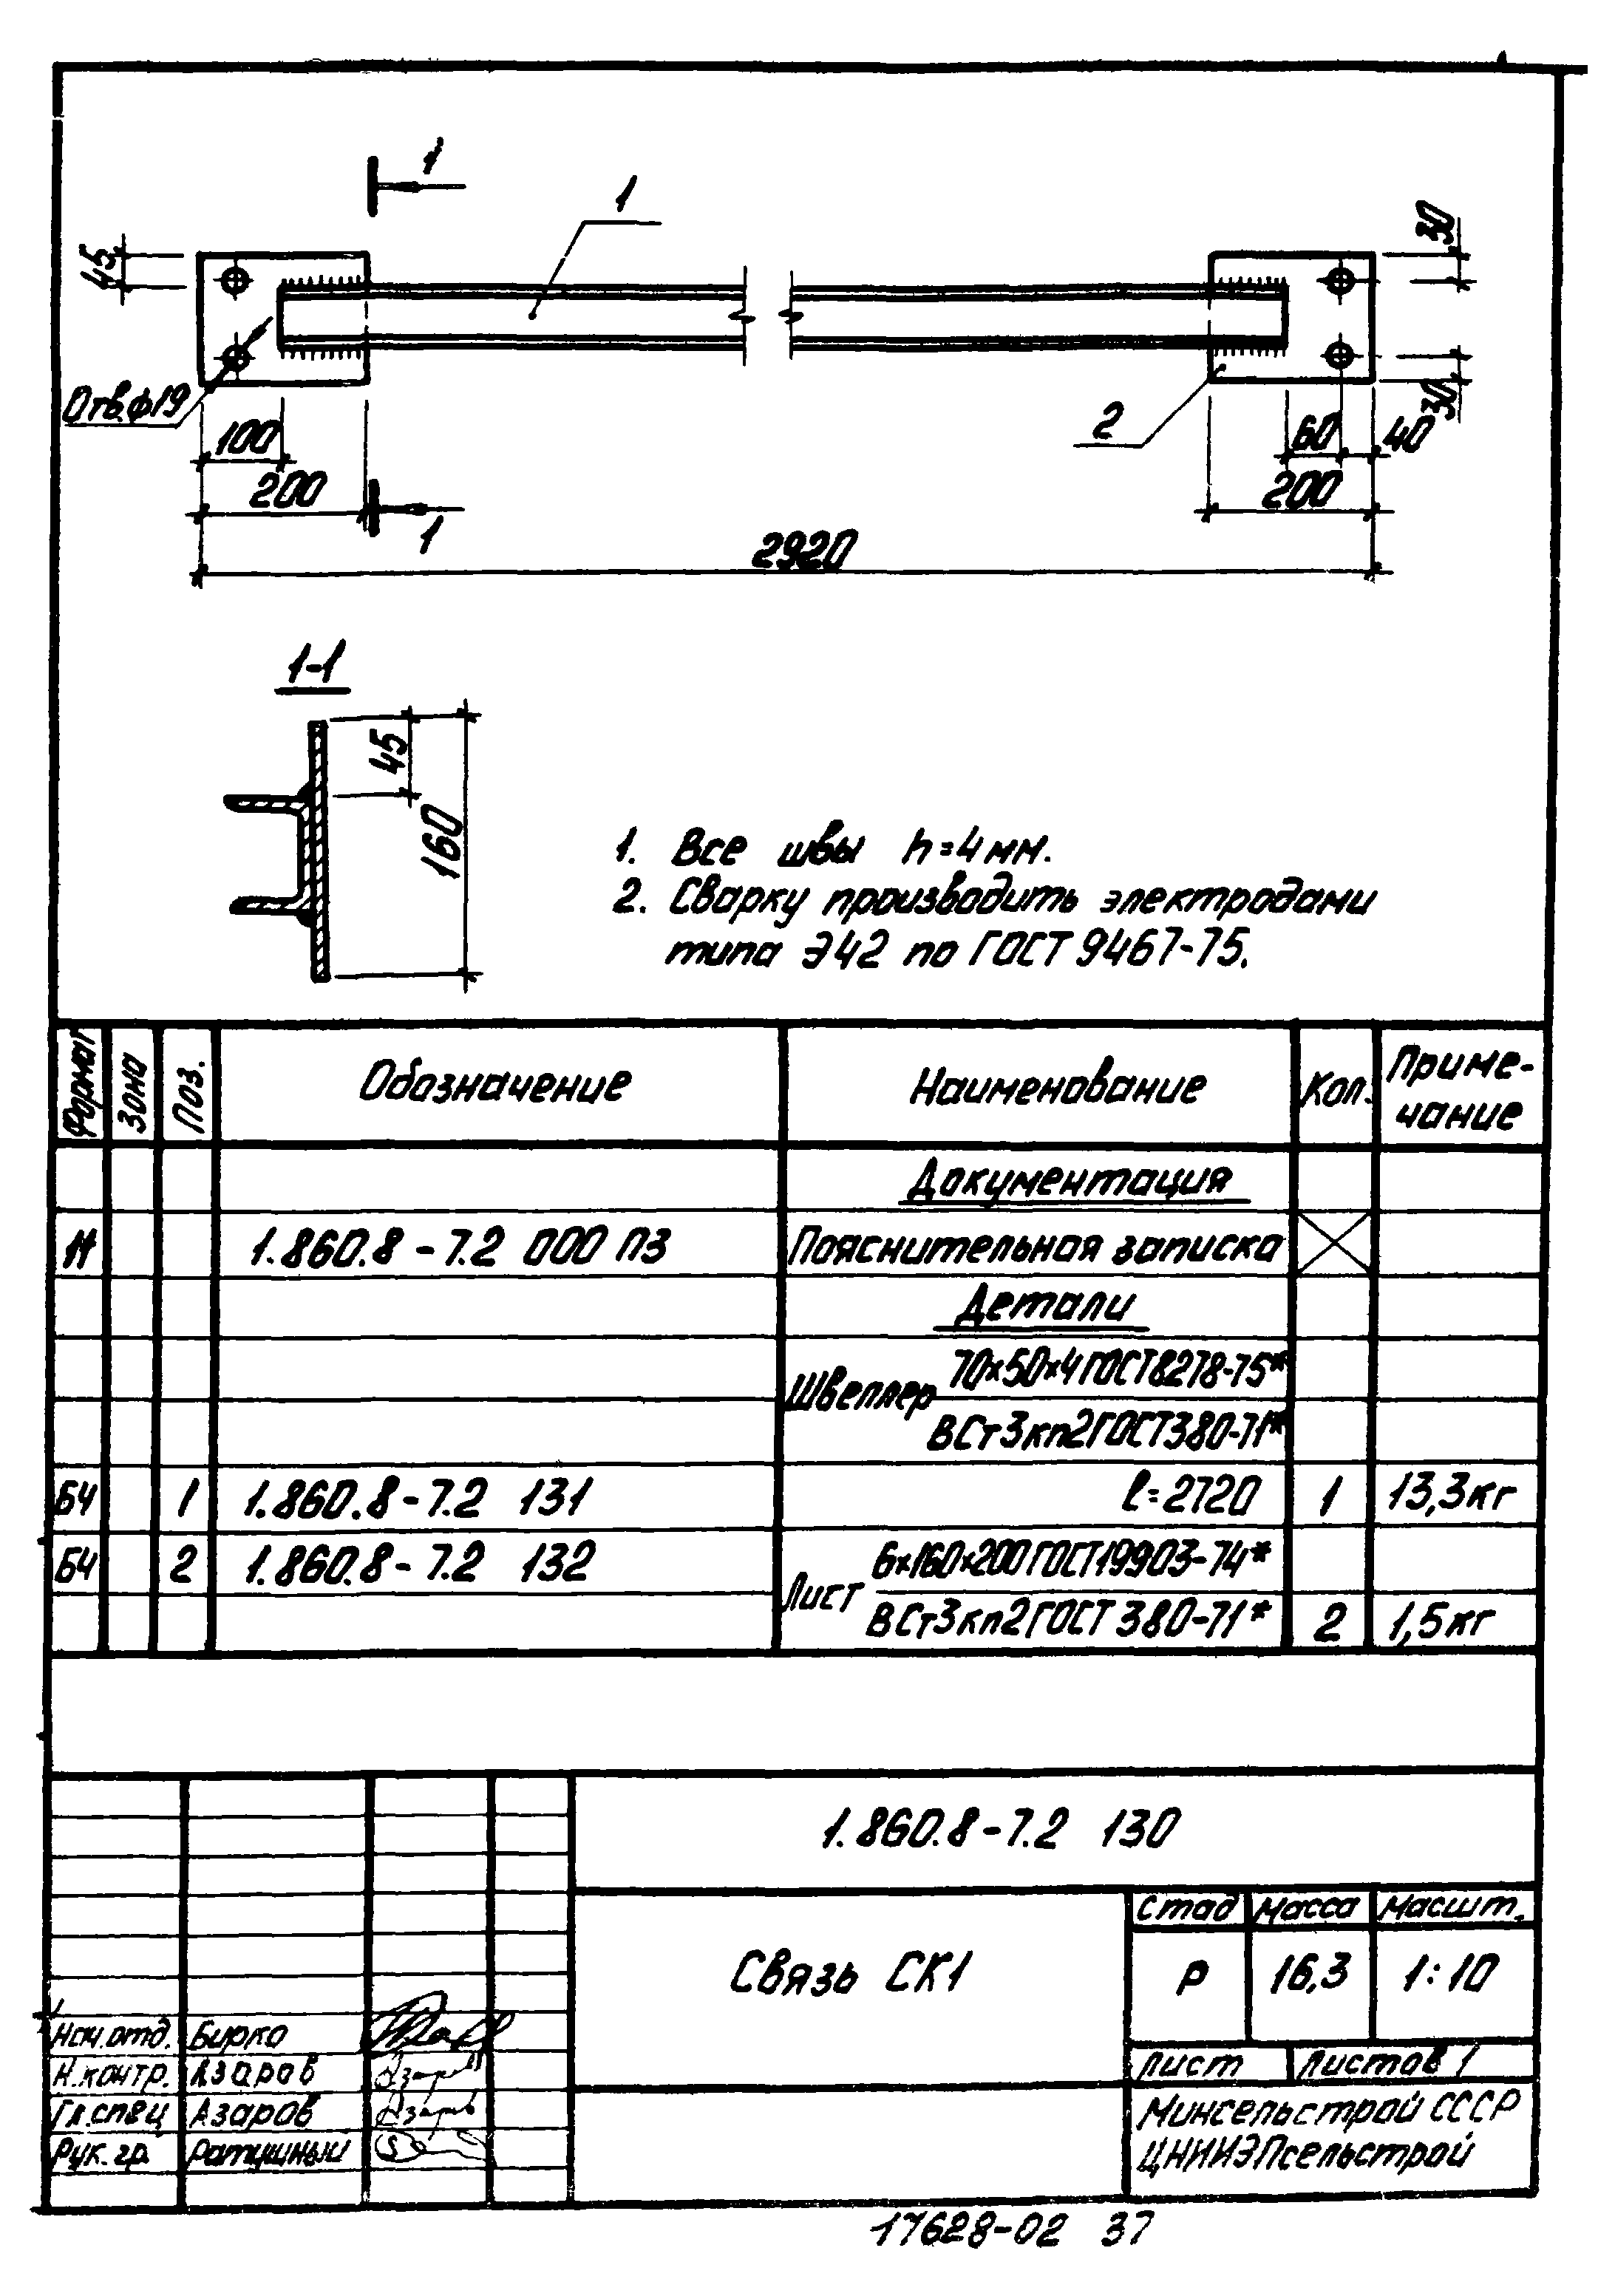 1
1
45
30
Отв.ф19
2
30
100
60
40
200
200
1
2920
1-1
45
160
1. Все швы h=4мм.
2. Сварку производить электродами
типа Э42 по ГОСТ 9467-75.
Формат Зона Поз. Обозначение Наименование Кол. Приме-
чание
Документация
И 1.860.8-7.2 000 ПЗ Пояснительная записка
Детали
70х50х4 ГОСТ 8278-75*
Швеллер
ВСт3кп2 ГОСТ 380-71*
БЧ 1 1.860.8-7.2 131 ℓ=2720 1 13,3кг
БЧ 2 1.860.8-7.2 132 6х160х200 ГОСТ 19903-74*
Лист
ВСт3кп2 ГОСТ 380-71* 2 1,5кг
1.860.8-7.2 130
Связь СК1
Стад Масса Масшт.
Р 16,3 1:10
Лист Листов 1
Минсельстрой СССР
ЦНИИЭПсельстрой
Нач.отд. Бирко
Н.контр. Азаров
Гл.спец Азаров
Рук.гр. Ратушный
17628-02 37